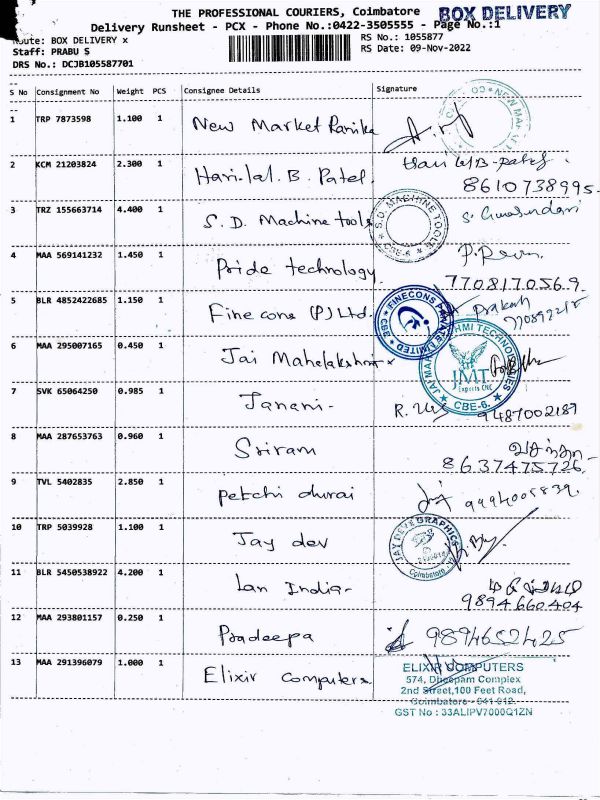 THE PROFESSIONAL COURIERS, Coimbatore
BOX DELIVERY
Delivery Runsheet - PCX - Phone No.:0422-3505555 - Page No.:1
Route: BOX DELIVERY x
RS No.: 1055877
Staff: PRABU S
RS Date: 09-Nov-2022
DRS No.: DCJB105587701
S No Consignment No Weight PCS Consignee Details Signature
1 TRP 7873598 1.100 1 New Market
2 KCM 21203824 2.300 1 Hari.lal.B.Patel. Hari lal B-patel.
8610738995
3 TRZ 155663714 4.400 1 S.D. Machine tools
S.D. MACHINE TOOLS CBE-6
4 MAA 569141232 1.450 1 Pride technology
7708170569
5 BLR 4852422685 1.150 1 Fine cons (P) Ltd. Prakash
FINECONS PRIVATE LIMITED CBE-3
6 MAA 295007165 0.450 1 Jai Mahalakshmi x
TECHNOLOGIES JMT Experts CNC CBE-6.
7 SVK 65064250 0.985 1 Janani-
9487002187
8 MAA 287653763 0.960 1 Sriram
8637475726
9 TVL 5402835 2.850 1 petchi durai
9994005839
10 TRP 5039928 1.100 1 Jay dev
GRAPHICS Coimbatore
11 BLR 5450538922 4.200 1 Lan India-
9894660404
12 MAA 293801157 0.250 1 Pradeepa 9894652425
13 MAA 291396079 1.000 1 Elixir Computers
ELIXIR COMPUTERS
574, Dheepam Complex
2nd Street,100 Feet Road,
Coimbatore - 641 012.
GST No : 33ALIPV7000Q1ZN